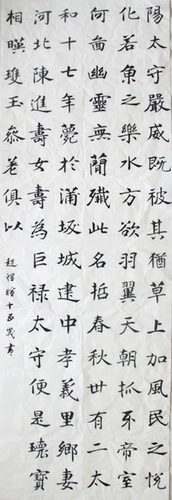 陽太守嚴威既被其猶草上加風民之悅
化若魚之樂水方欲羽翼天朝抓牙帝室
何啚幽靈無簡殲此名喆春秋卌有二太
和十七年薨於滿坂城建中孝義里鄉妻
河北陳進壽女壽為巨禄太守便是瓌寶
相暎瓊玉叅差俱以